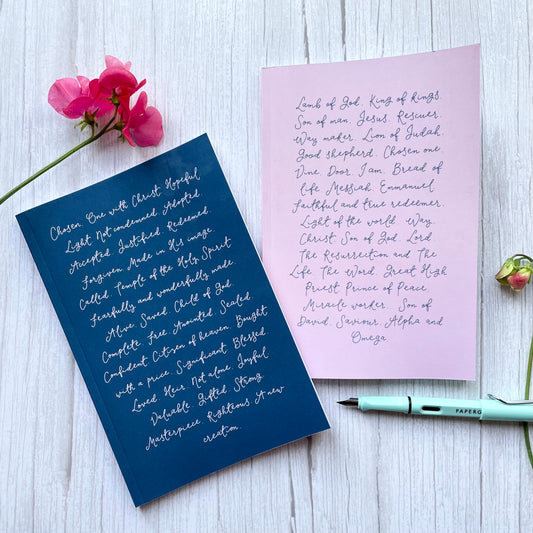 Chosen. One with Christ. Hopeful.
Light. Not condemned. Adopted.
Accepted. Justified. Redeemed.
Forgiven. Made in His image.
Called. Temple of the Holy Spirit.
Fearfully and wonderfully made.
Alive. Saved. Child of God.
Complete. Free. Anointed. Sealed.
Confident. Citizen of heaven. Bought
with a price. Significant. Blessed.
Loved. Heir. Not alone. Joyful.
Valuable. Gifted. Strong.
Masterpiece. Righteous. A new
creation.
Lamb of God. King of kings.
Son of man. Jesus. Rescuer.
Way maker. Lion of Judah.
Good shepherd. Chosen one.
Vine. Door. I am. Bread of
life. Messiah. Emmanuel.
Faithful and true redeemer.
Light of the world. Way.
Christ. Son of God. Lord.
The Resurrection and The
Life. The Word. Great High
Priest. Prince of Peace.
Miracle worker. Son of
David. Saviour. Alpha and
Omega.
PAPERG